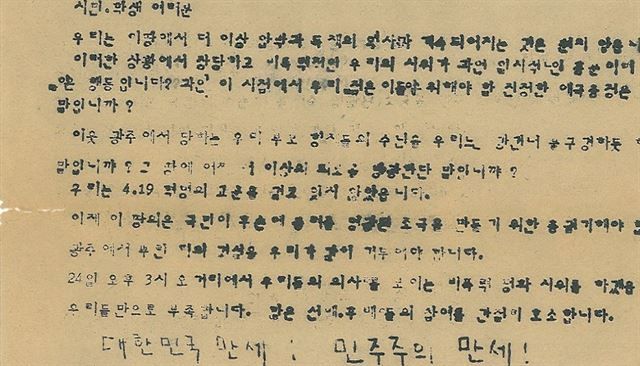 시민.학생 여러분
우리는 이땅에서 더 이상 압박과 독재의 역사가 계속되어지는 것은 원치 않습니
이러한 상황에서 정당하고 비폭력적인 우리의 시위가 과연 일시적인 흥분이며
않은 행동입니까? 과연 이 시점에서 우리 젊은 이들만 위해야 할 진정한 애국은
말입니까?
이웃 광주에서 당하는 우리 부모 형제들의 수난을 우리는 강건너 불구경하듯
말입니까? 그 땅에 더 이상의 피흘림을 말입니까?
우리는 4.19 혁명의 교훈을 결코 잊지 않았읍니다.
이제 이 땅의 국민이 후손에 조국을 만들기 위한 총궐기해야
광주에서 뿌린 피의 결실을 우리가 같이 거두어야 합니다.
24일 오후 3시 오거리에서 우리들의 의사를 보이는 비폭력 평화 시위를 하겠
우리들만으로 부족합니다. 많은 선배.후배들의 참여를 간절히 호소합니다.
대한민국 만세! 민주주의 만세!